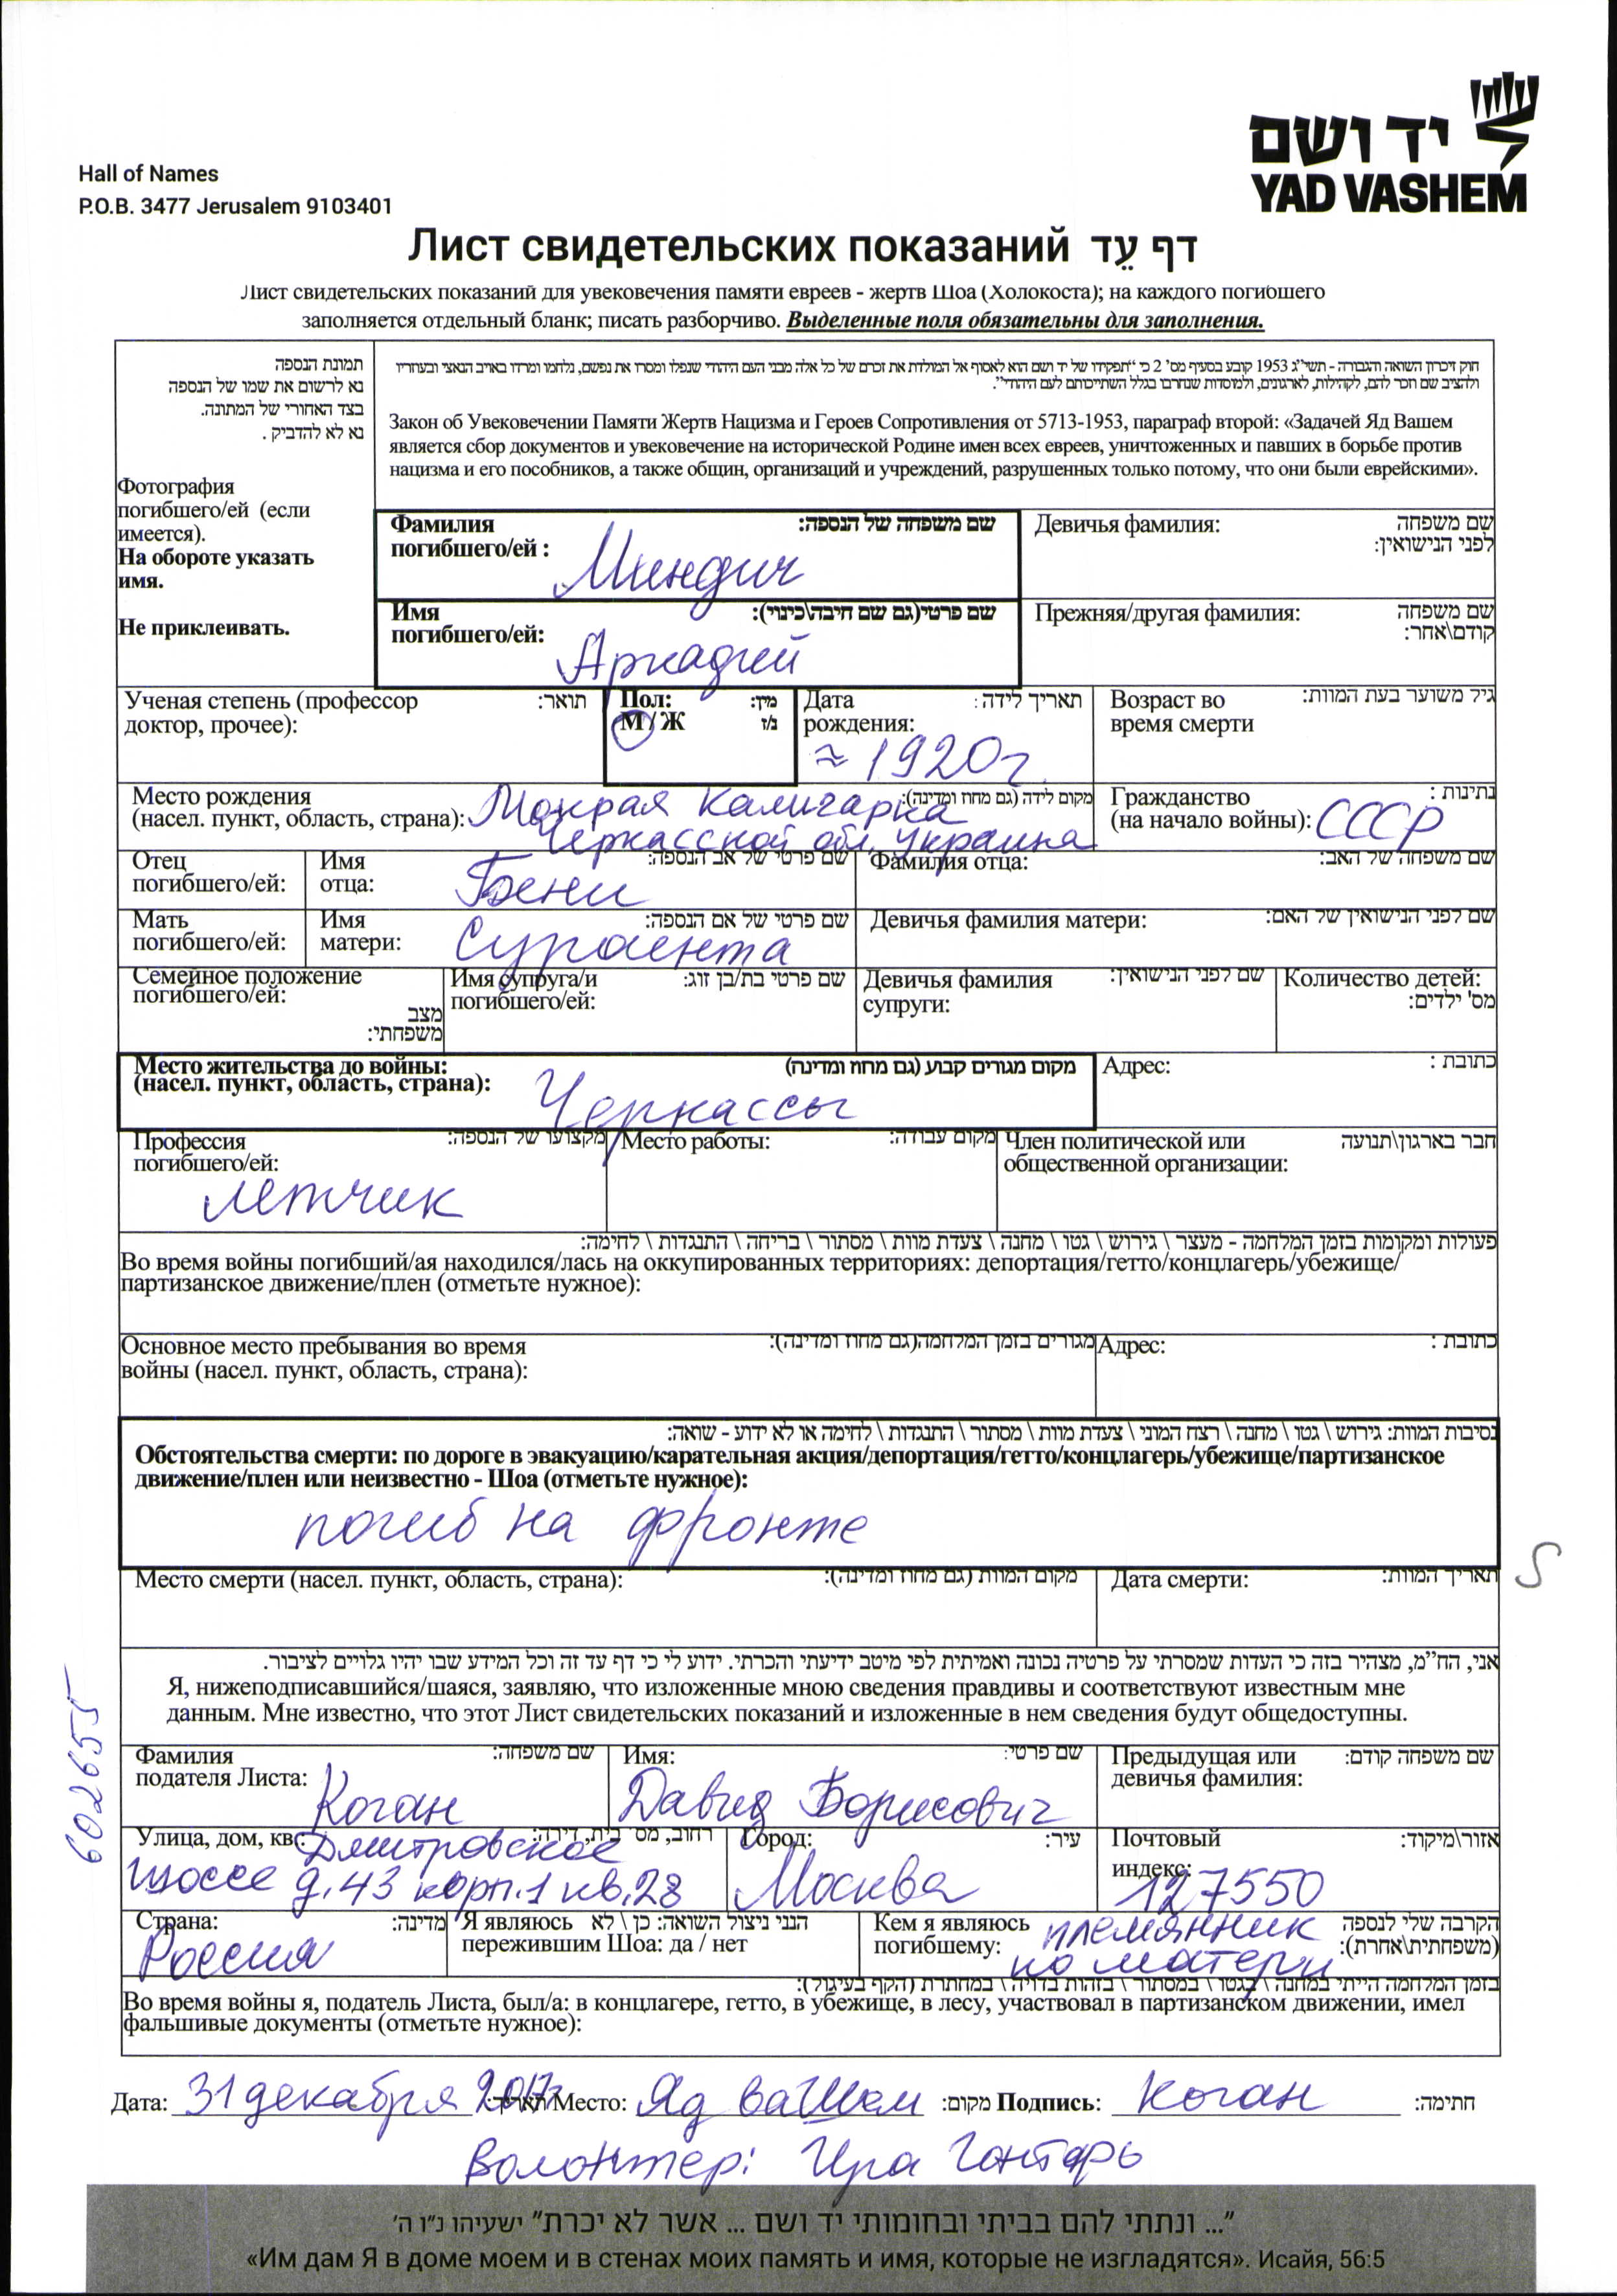 יד ושם
YAD VASHEM
Hall of Names
P.O.B. 3477 Jerusalem 9103401
Лист свидетельских показаний דף עֵד
Лист свидетельских показаний для увековечения памяти евреев - жертв Шоа (Холокоста); на каждого погибшего
заполняется отдельный бланк; писать разборчиво. Выделенные поля обязательны для заполнения.
תמונת הנספה
נא לרשום את שמו של הנספה
בצד האחורי של המתונה.
נא לא להדביק .
Фотография
погибшего/ей (если
имеется).
На обороте указать
имя.
Не приклеивать.
חוק זיכרון השואה והגבורה - תשי"ג 1953 קובע בסעיף מס' 2 כי "תפקידו של יד ושם הוא לאסוף אל המולדת את זכרם של כל אלה מבני העם היהודי שנפלו ומסרו את נפשם, נלחמו ומרדו באויב הנאצי ובעוזריו
ולהציב שם וזכר להם, לקהילות, לארגונים, ולמוסדות שנחרבו בגלל השתייכותם לעם היהודי".
Закон об Увековечении Памяти Жертв Нацизма и Героев Сопротивления от 5713-1953, параграф второй: «Задачей Яд Вашем
является сбор документов и увековечение на исторической Родине имен всех евреев, уничтоженных и павших в борьбе против
нацизма и его пособников, а также общин, организаций и учреждений, разрушенных только потому, что они были еврейскими».
Фамилия שם משפחה של הנספה:
погибшего/ей : Миндич
Девичья фамилия: שם משפחה
לפני הנישואין:
Имя שם פרטי(גם שם חיבה\כינוי):
погибшего/ей: Аркадий
Прежняя/другая фамилия: שם משפחה
קודם\אחר:
Ученая степень (профессор תואר:
доктор, прочее):
Пол: מין:
М / Ж ז/נ
Дата תאריך לידה :
рождения: ≈ 1920 г.
Возраст во גיל משוער בעת המוות:
время смерти
Место рождения Мокрая Калигарка מקום לידה (גם מחוז ומדינה):
(насел. пункт, область, страна): Черкасской обл. Украина
Гражданство נתינות :
(на начало войны): СССР
Отец Имя שם פרטי של אב הנספה: Фамилия отца: שם משפחה של האב:
погибшего/ей: отца: Бени
Мать Имя שם פרטי של אם הנספה: Девичья фамилия матери: שם לפני הנישואין של האם:
погибшего/ей: матери:
Семейное положение Имя супруга/и שם פרטי בת/בן זוג: Девичья фамилия שם לפני הנישואין: Количество детей:
погибшего/ей: погибшего/ей: супруги: מס' ילדים:
מצב
משפחתי:
Место жительства до войны: מקום מגורים קבוע (גם מחוז ומדינה) Адрес: כתובת :
(насел. пункт, область, страна): Черкассы
Профессия מקצועו של הנספה: Место работы: מקום עבודה: Член политической или חבר בארגון\תנועה
погибшего/ей: общественной организации:
летчик
פעולות ומקומות בזמן המלחמה - מעצר \ גירוש \ גטו \ מחנה \ צעדת מוות \ מסתור \ בריחה \ התנגדות \ לחימה:
Во время войны погибший/ая находился/лась на оккупированных территориях: депортация/гетто/концлагерь/убежище/
партизанское движение/плен (отметьте нужное):
Основное место пребывания во время מגורים בזמן המלחמה(גם מחוז ומדינה): Адрес: כתובת :
войны (насел. пункт, область, страна):
נסיבות המוות: גירוש \ גטו \ מחנה \ רצח המוני \ צעדת מוות \ מסתור \ התנגדות \ לחימה או לא ידוע - שואה:
Обстоятельства смерти: по дороге в эвакуацию/карательная акция/депортация/гетто/концлагерь/убежище/партизанское
движение/плен или неизвестно - Шоа (отметьте нужное):
погиб на фронте
S
Место смерти (насел. пункт, область, страна): מקום המוות (גם מחוז ומדינה): Дата смерти: תאריך המוות:
אני, הח"מ, מצהיר בזה כי העדות שמסרתי על פרטיה נכונה ואמיתית לפי מיטב ידיעתי והכרתי. ידוע לי כי דף עד זה וכל המידע שבו יהיו גלויים לציבור.
Я, нижеподписавшийся/шаяся, заявляю, что изложенные мною сведения правдивы и соответствуют известным мне
данным. Мне известно, что этот Лист свидетельских показаний и изложенные в нем сведения будут общедоступны.
602655
Фамилия שם משפחה: Имя: שם פרטי: Предыдущая или שם משפחה קודם:
подателя Листа: Коган Давид Борисович девичья фамилия:
Улица, дом, кв.: Дмитровское רחוב, מס' בית, דירה: Город: עיר: Почтовый אזור\מיקוד:
шоссе д.43 корп.1 кв.28 Москва индекс: 127550
Страна: מדינה: Я являюсь הנני ניצול השואה: כן \ לא Кем я являюсь племянник הקרבה שלי לנספה
Россия пережившим Шоа: да / нет погибшему: по матери (משפחתית\אחרת):
בזמן המלחמה הייתי במחנה \ בגטו \ במסתור \ בזהות בדויה \ במחתרת (הקף בעיגול):
Во время войны я, податель Листа, был/а: в концлагере, гетто, в убежище, в лесу, участвовал в партизанском движении, имел
фальшивые документы (отметьте нужное):
Дата: 31 декабря 2017 תאריך: Место: Яд Вашем מקום: Подпись: Коган חתימה:
Волонтер: Ира Гонтарь
"... ונתתי להם בביתי ובחומותי יד ושם ... אשר לא יכרת" ישעיהו נ"ו ה'
«Им дам Я в доме моем и в стенах моих память и имя, которые не изгладятся». Исайя, 56:5